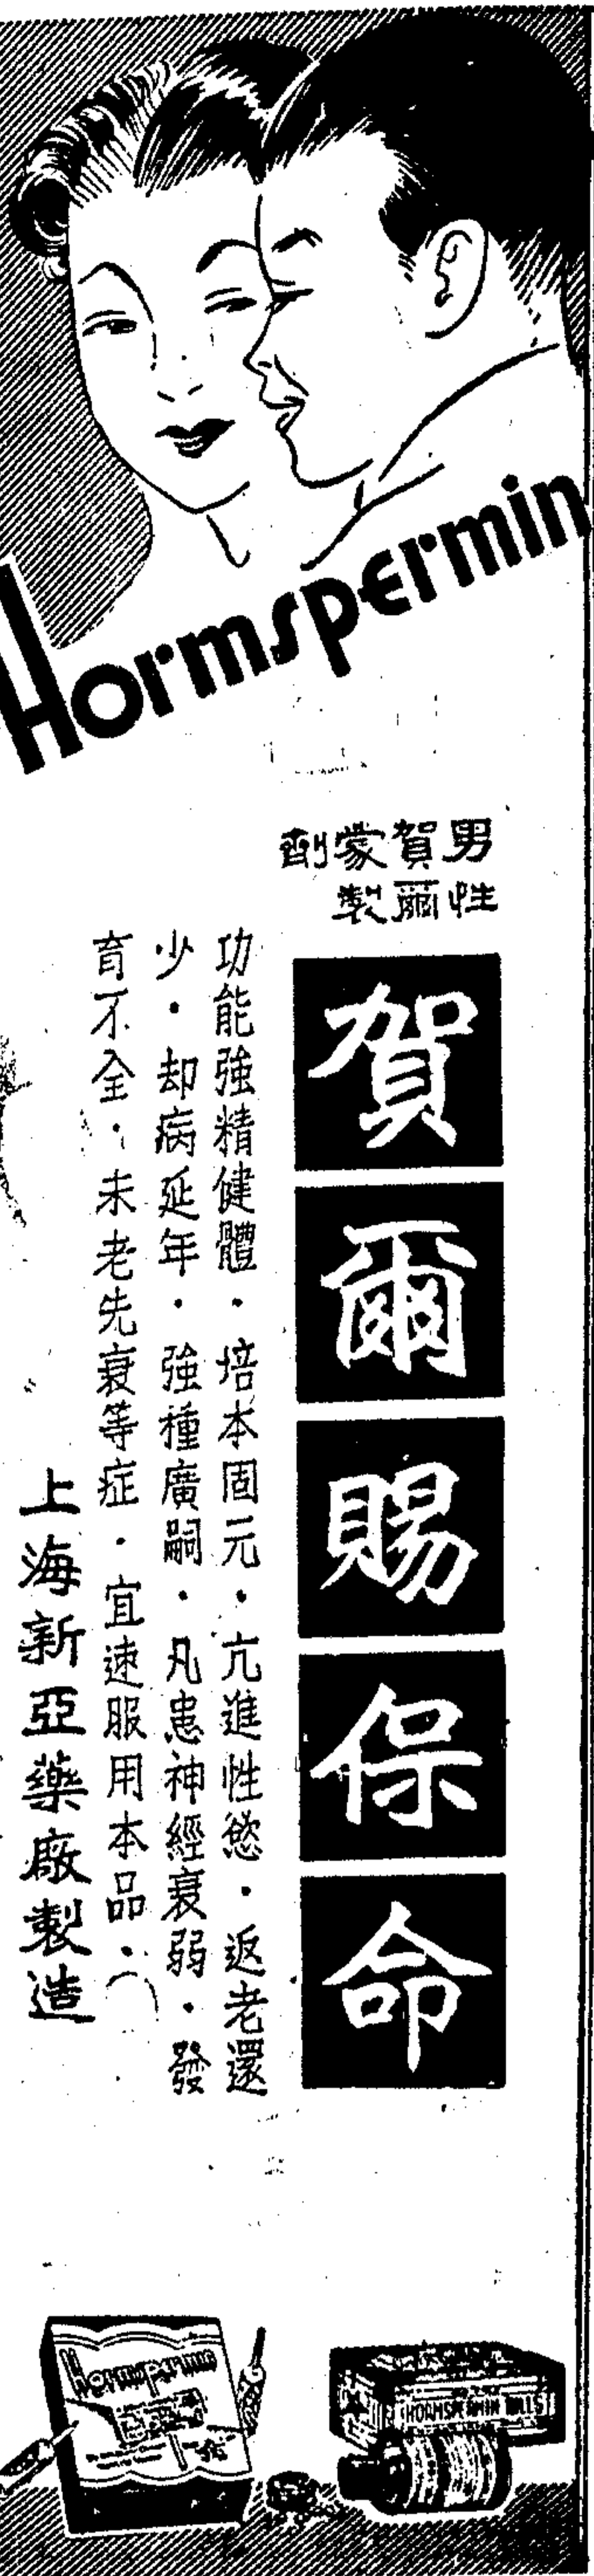 Hormspermin
男性賀爾蒙製劑
賀爾賜保命
功能強精健體・培本固元・亢進性慾・返老還
少・却病延年・強種廣嗣・凡患神經衰弱・發
育不全・未老先衰等症・宜速服用本品・
上海新亞藥廠製造
Hormspermin
HORMSPERMIN PILLS